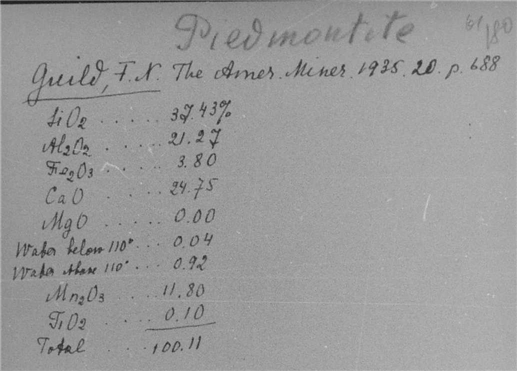 Piedmontite 61/180
Guild, F. N. The Amer. Miner. 1935. 20. p. 688
SiO2 ..... 37.43%
Al2O2 ..... 21.27
Fe2O3 .... 3.80
CaO ..... 24.75
MgO ..... 0.00
Water below 110° ... 0.04
Water above 110° ... 0.92
Mn2O3 .... 11.80
TiO2 .... 0.10
Total ..... 100.11